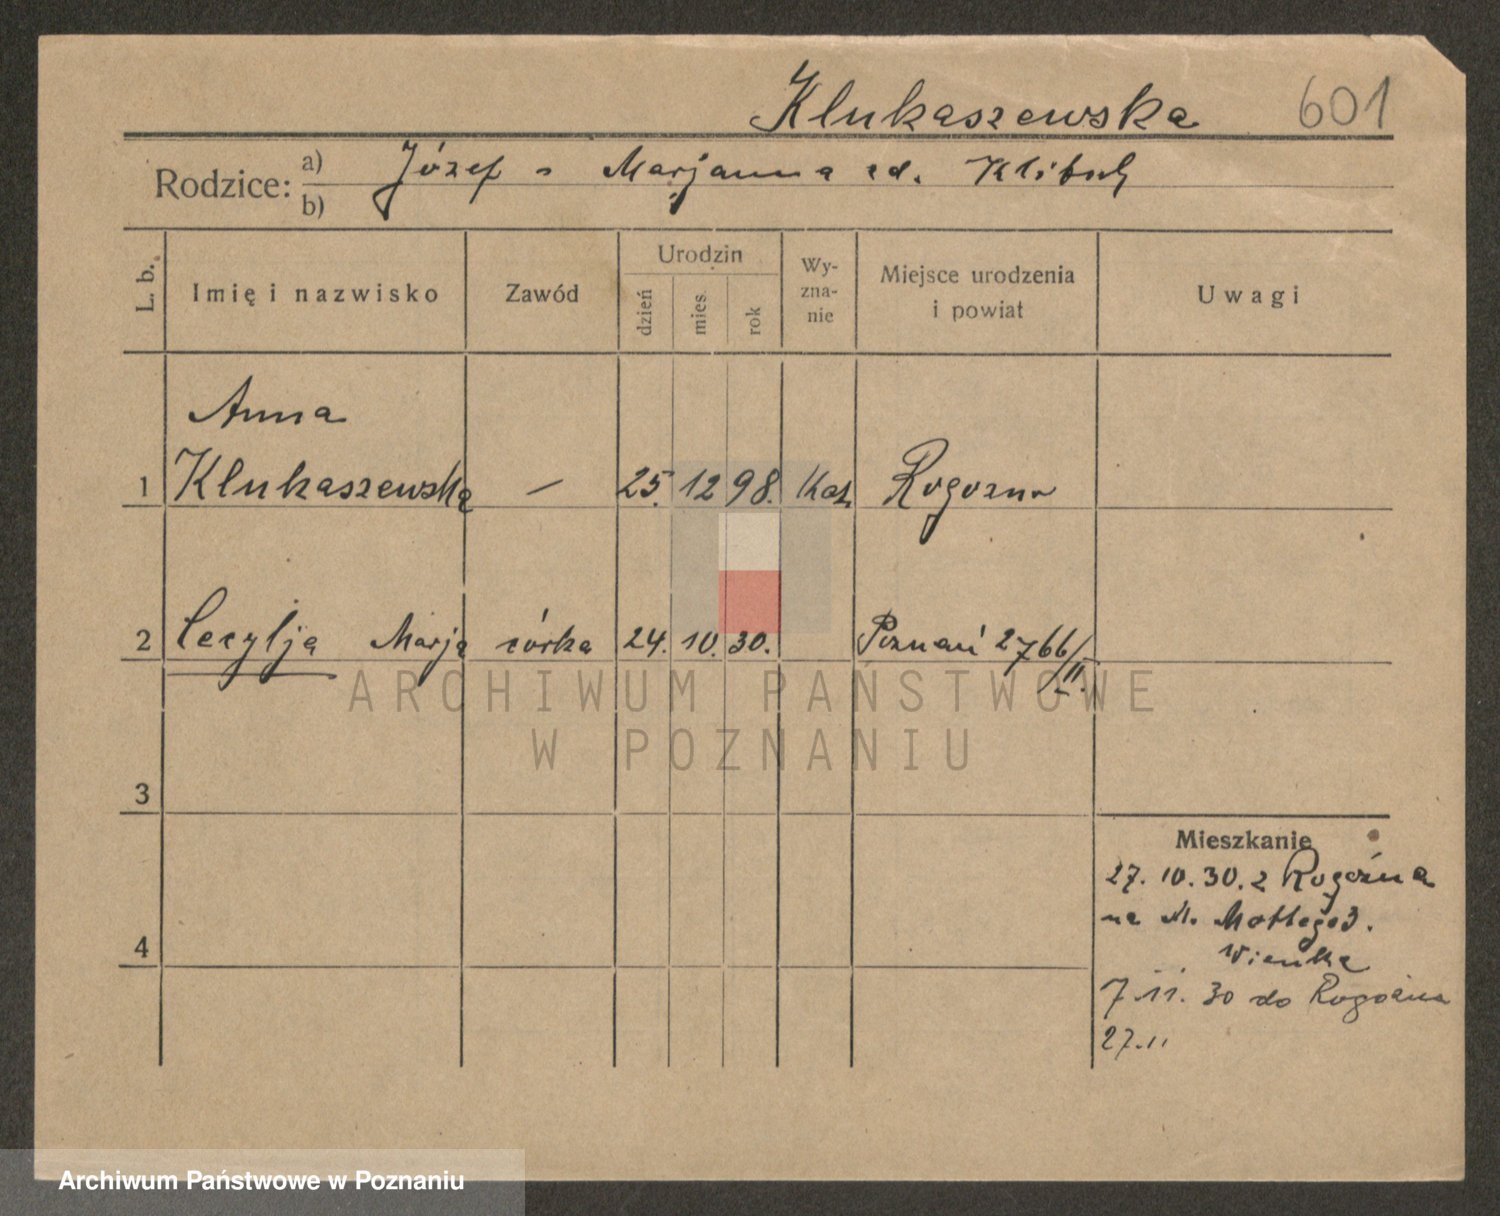 Klukaszewska 601
Rodzice: a) Józef - Marjanna zd.
b)
L. b. Imię i nazwisko Zawód Urodzin dzień mies. rok Wy-zna-nie Miejsce urodzenia i powiat Uwagi
Anna
1 Klukaszewska — 25. 12 98. Kat. Rogozno
2 Cecylja Marja córka 24. 10. 30. Poznań 2766/II.
3
Mieszkanie
27. 10. 30. z Rogoźna
na
4
7.11.30 do Rogoźna
27.11
ARCHIWUM PAŃSTWOWE
W POZNANIU
Archiwum Państwowe w Poznaniu